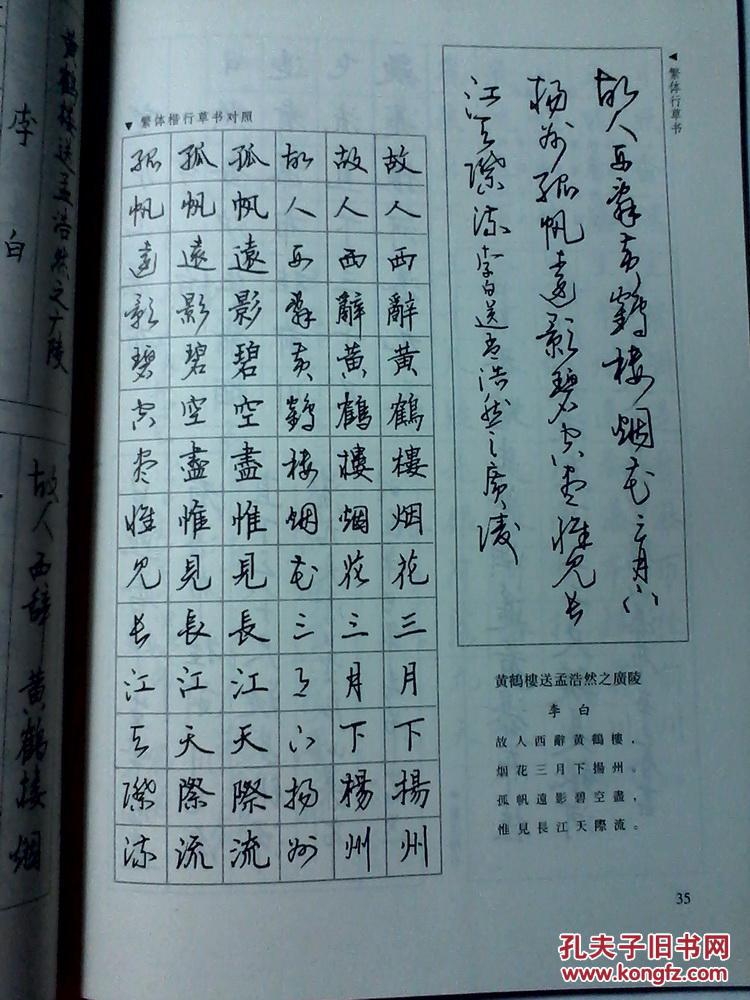 繁体行草书
故人西辭黄鶴樓烟花三月下
楊州孤帆遠影碧空盡惟見長
江天際流李白送孟浩然之廣陵
繁体楷行草书对照
故人西辭黄鶴樓烟花三月下揚州
故人西辭黄鶴樓烟花三月下楊州
故人西辭黄鶴樓烟花三月下揚州
孤帆遠影碧空盡惟見長江天際流
孤帆遠影碧空盡惟見長江天際流
孤帆遠影碧空盡惟見長江天際流
黄鶴樓送孟浩然之廣陵
李白
故人西辭黄鶴樓，
烟花三月下揚州。
孤帆遠影碧空盡，
惟見長江天際流。
35
黄鹤楼送孟浩然之广陵
李白
故人西辞黄鹤楼烟
孔夫子旧书网